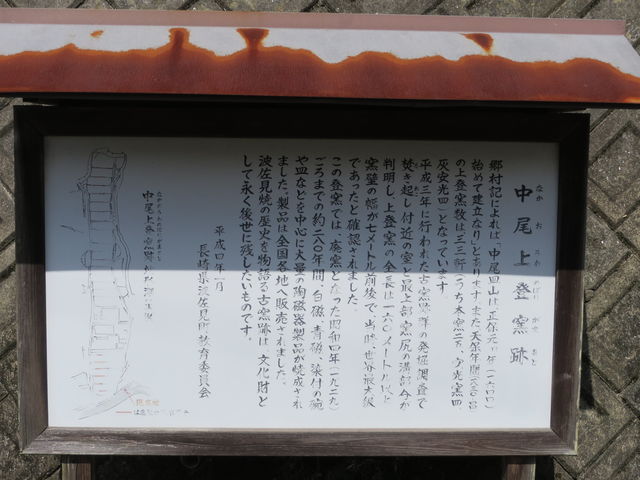 中尾上登窯跡
郷村記によれば「中尾皿山は正保元年(一六四四)
始めて建立なり」とあります。また大
の上登窯数は三三軒(うち本窯二
灰安光四)となっています。
平成三年に行われた古窯跡群の発掘調査で
焚き起し付近の室と最上部窯尻の溝部分が
判明し、上登窯の全長は一六〇メートル以上
窯壁の幅が七メートル前後で、当時、世界最大級
であったと確認されました。
この登窯では、廃窯となった昭和四年(一九二九)
ごろまでの約二八〇年間、白磁、青磁、染付の碗
や皿などを中心に大量の陶磁器製品が焼成され
ました。製品は全国各地へ販売されました。
波佐見焼の歴史を物語る古窯跡は、文化財と
して永く後世に残したいものです。
平成四年 月
長崎県波佐見町教育委員会
中尾上登窯跡